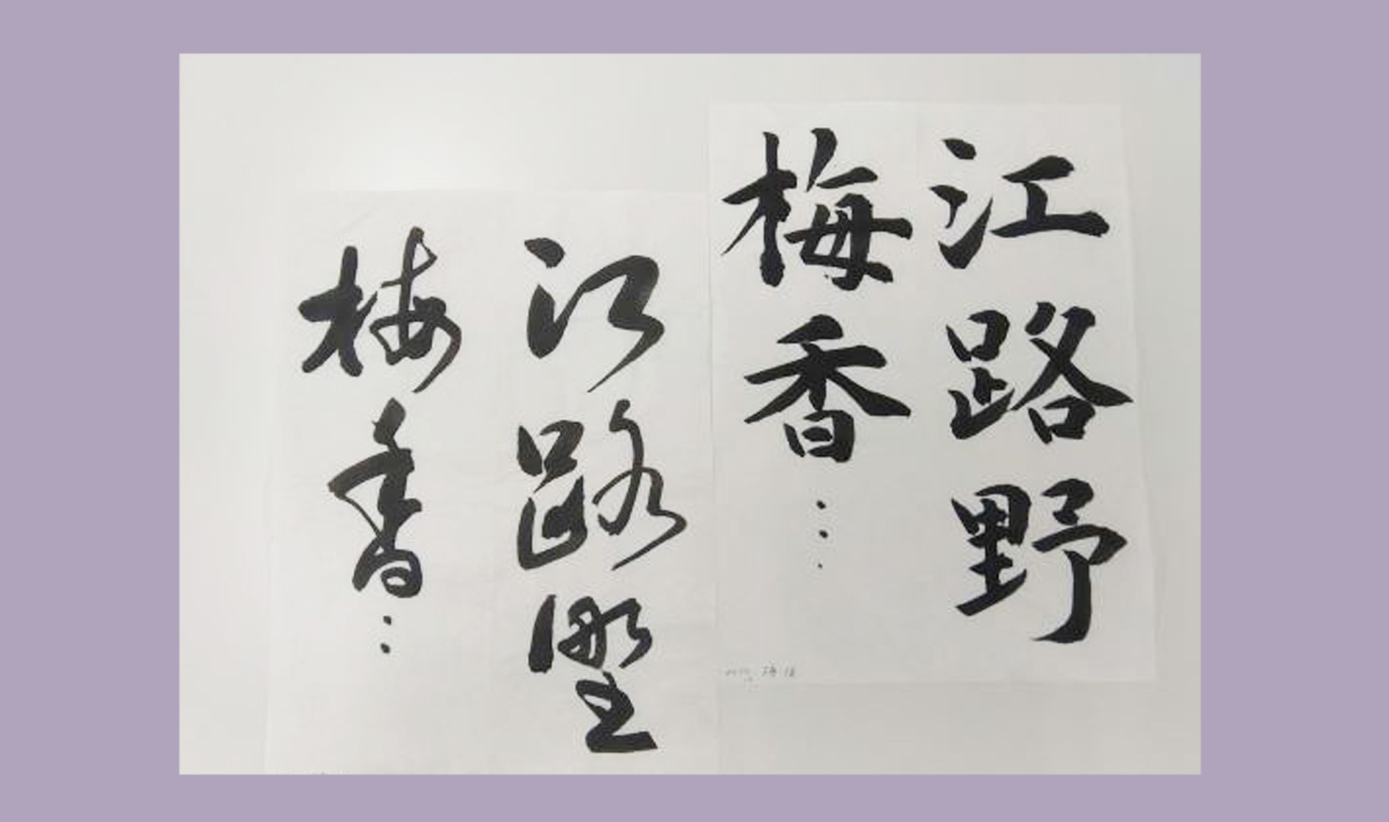 江路野
梅香…
江路野
梅香: